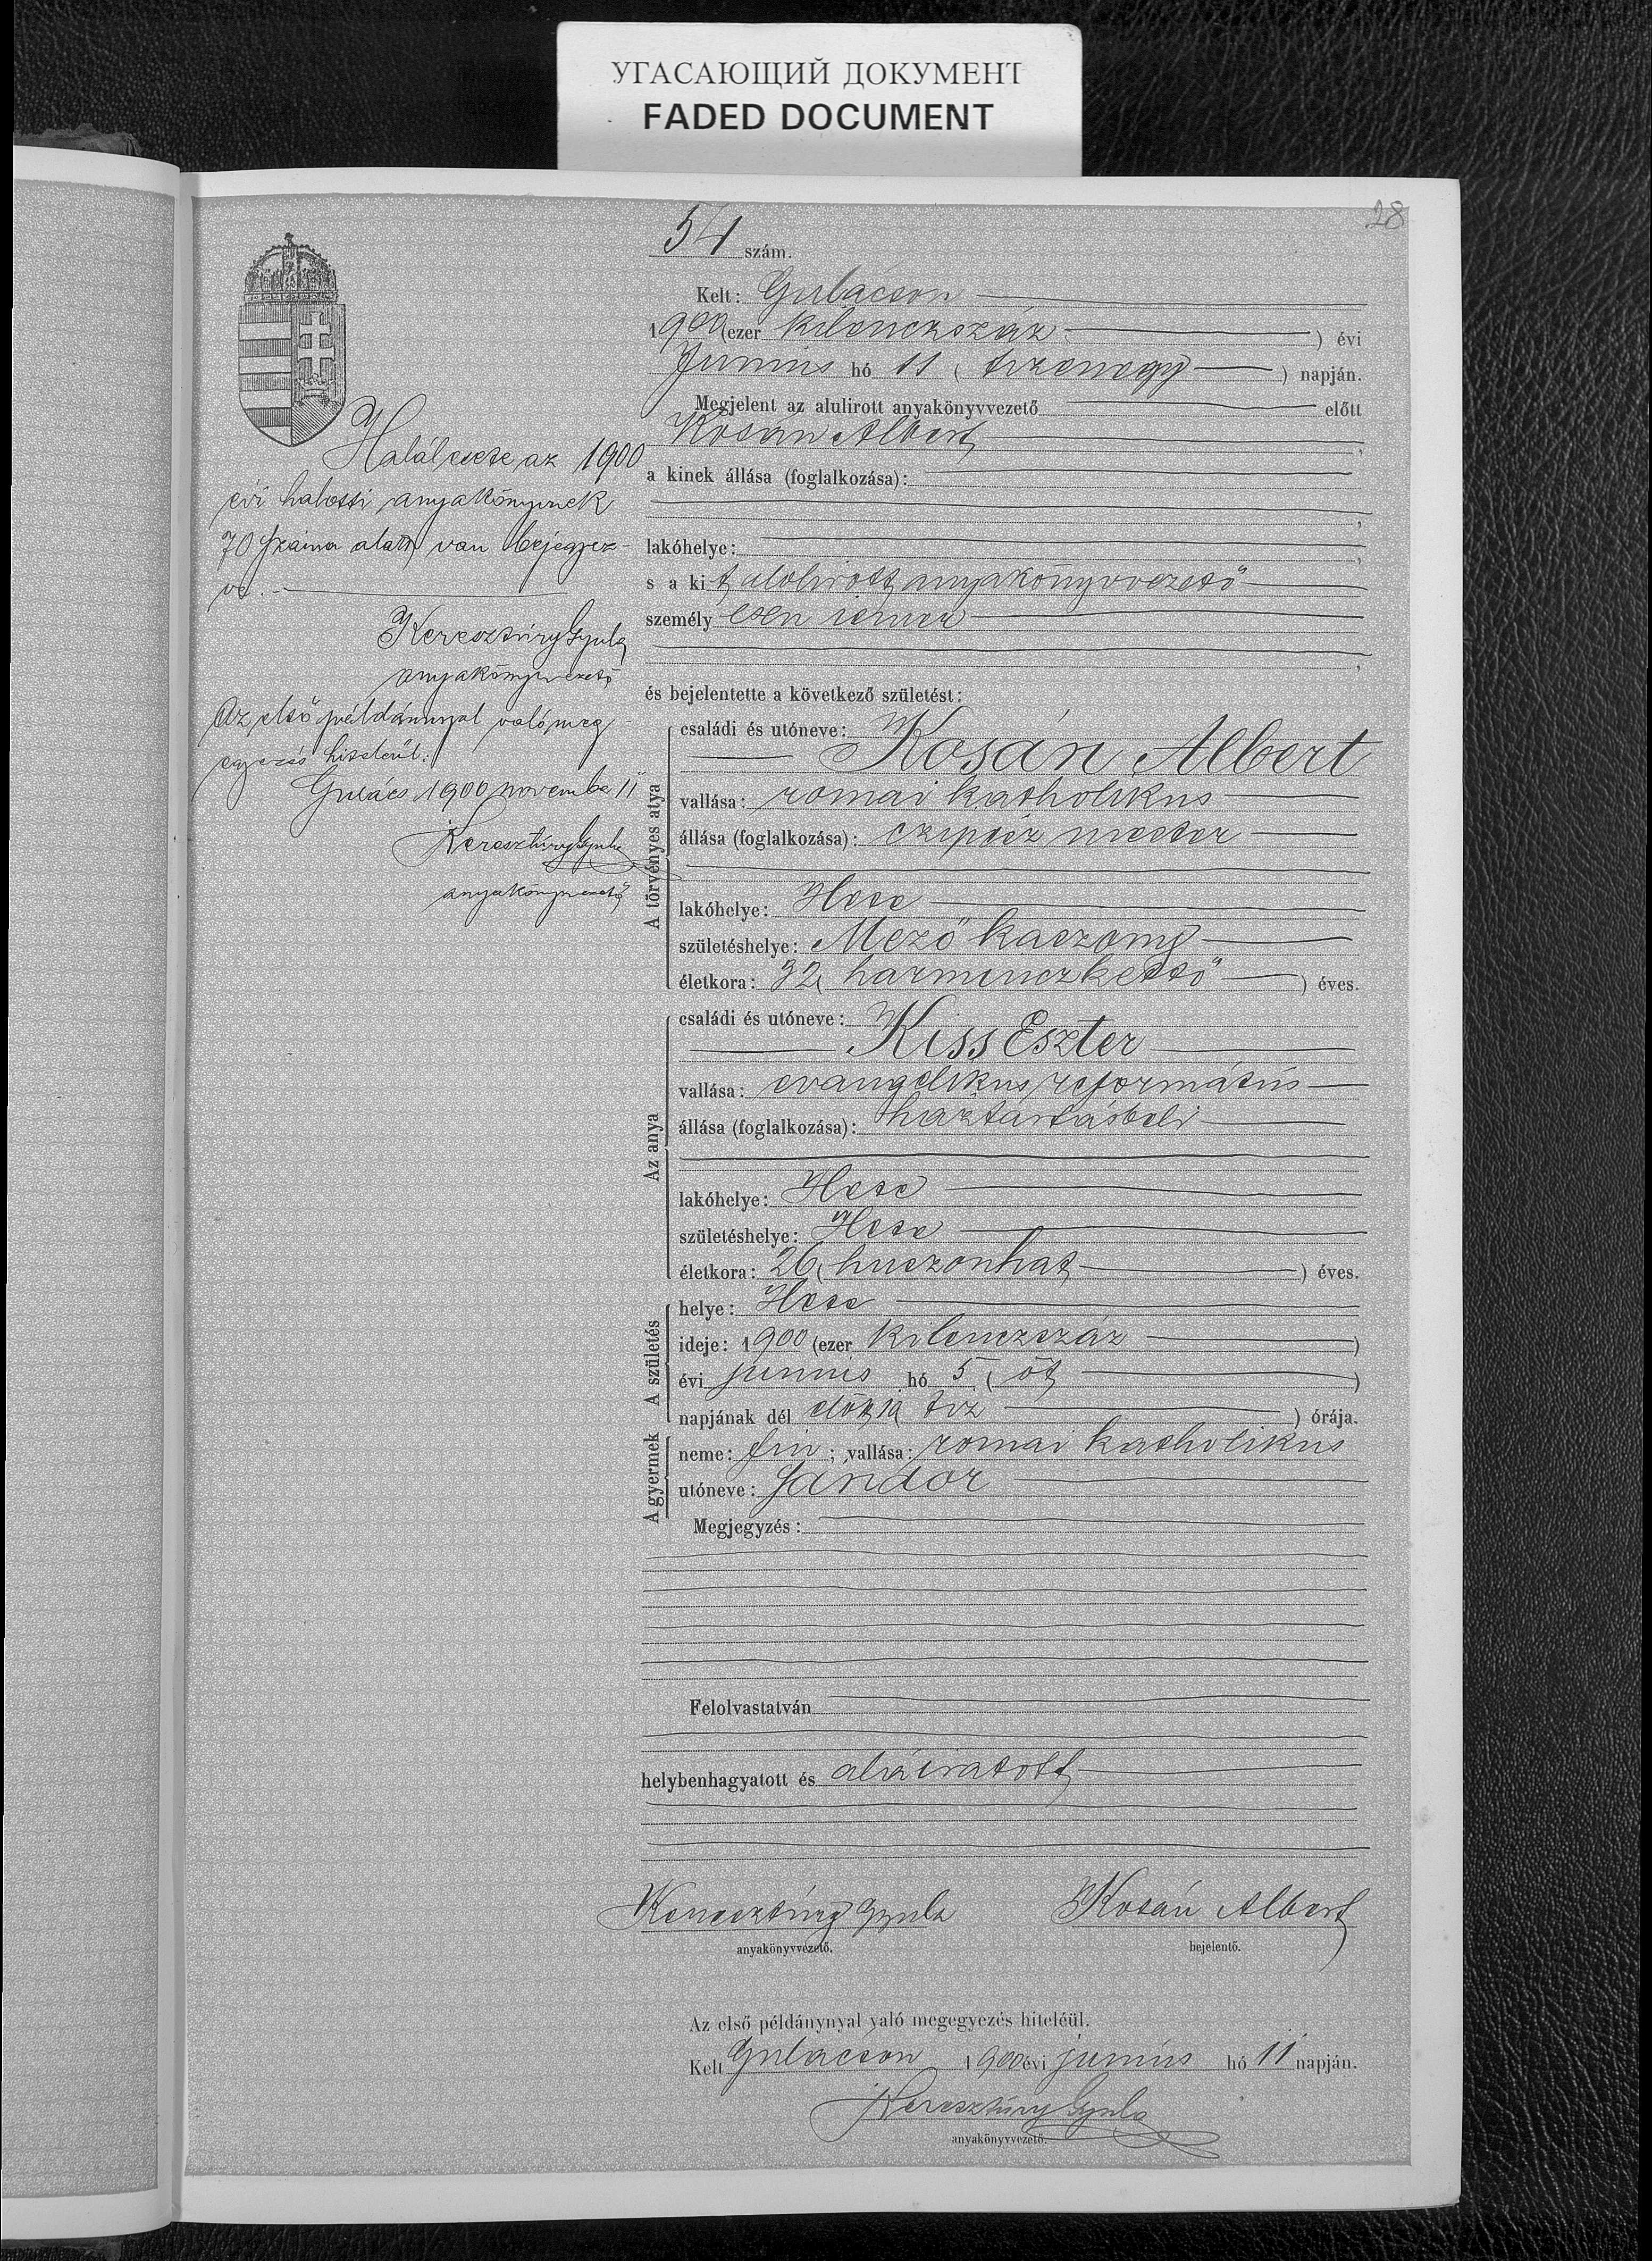 УГАСАЮЩИЙ ДОКУМЕНТ
FADED DOCUMENT
28
54 szám.
Kelt: Gulácson
1900 (ezer kilenczszáz ) évi
Junius hó 11 ( tizenegy ) napján.
Megjelent az alulirott anyakönyvvezető előtt
Kosán Albert,
a kinek állása (foglalkozása):
lakóhelye:
s a kit alulirott anyakönyvvezető
személyesen ismer
és bejelentette a következő születést:
A törvényes atya
családi és utóneve:
Kosán Albert
vallása: romai katholikus
állása (foglalkozása): czipész mester
lakóhelye: Hete
születéshelye: Mező kaszony
életkora: 32 ( harminczkettő ) éves.
Az anya
családi és utóneve:
Kiss Eszter
vallása: evangelikus református
állása (foglalkozása): háztartásbeli
lakóhelye: Hete
születéshelye: Hete
életkora: 26 ( huszonhat ) éves.
A születés
helye: Hete
ideje: 1900 (ezer kilenczszáz )
évi junius hó 5 ( öt )
napjának dél előtt 10 ( tiz ) órája.
A gyermek
neme: fiu ; vallása: romai katholikus
utóneve: Sándor
Megjegyzés:
Felolvastatván
helybenhagyatott és aláiratott
Keresztúry Gyula Kosán Albert
anyakönyvvezető. bejelentő.
Az első példánynyal való megegyezés hiteléül.
Kelt Gulácson 1900 évi junius hó 11 napján.
Keresztúry Gyula
anyakönyvvezető.
Halálesete az 1900
évi halotti anyakönyvnek
70 száma alatt van bejegyez-
ve.
Keresztúry Gyula
anyakönyvvezető
Az első példánnyal való meg-
egyezés hiteléül.
Gulács 1900 november 11
Keresztúry Gyula
anyakönyvvezető